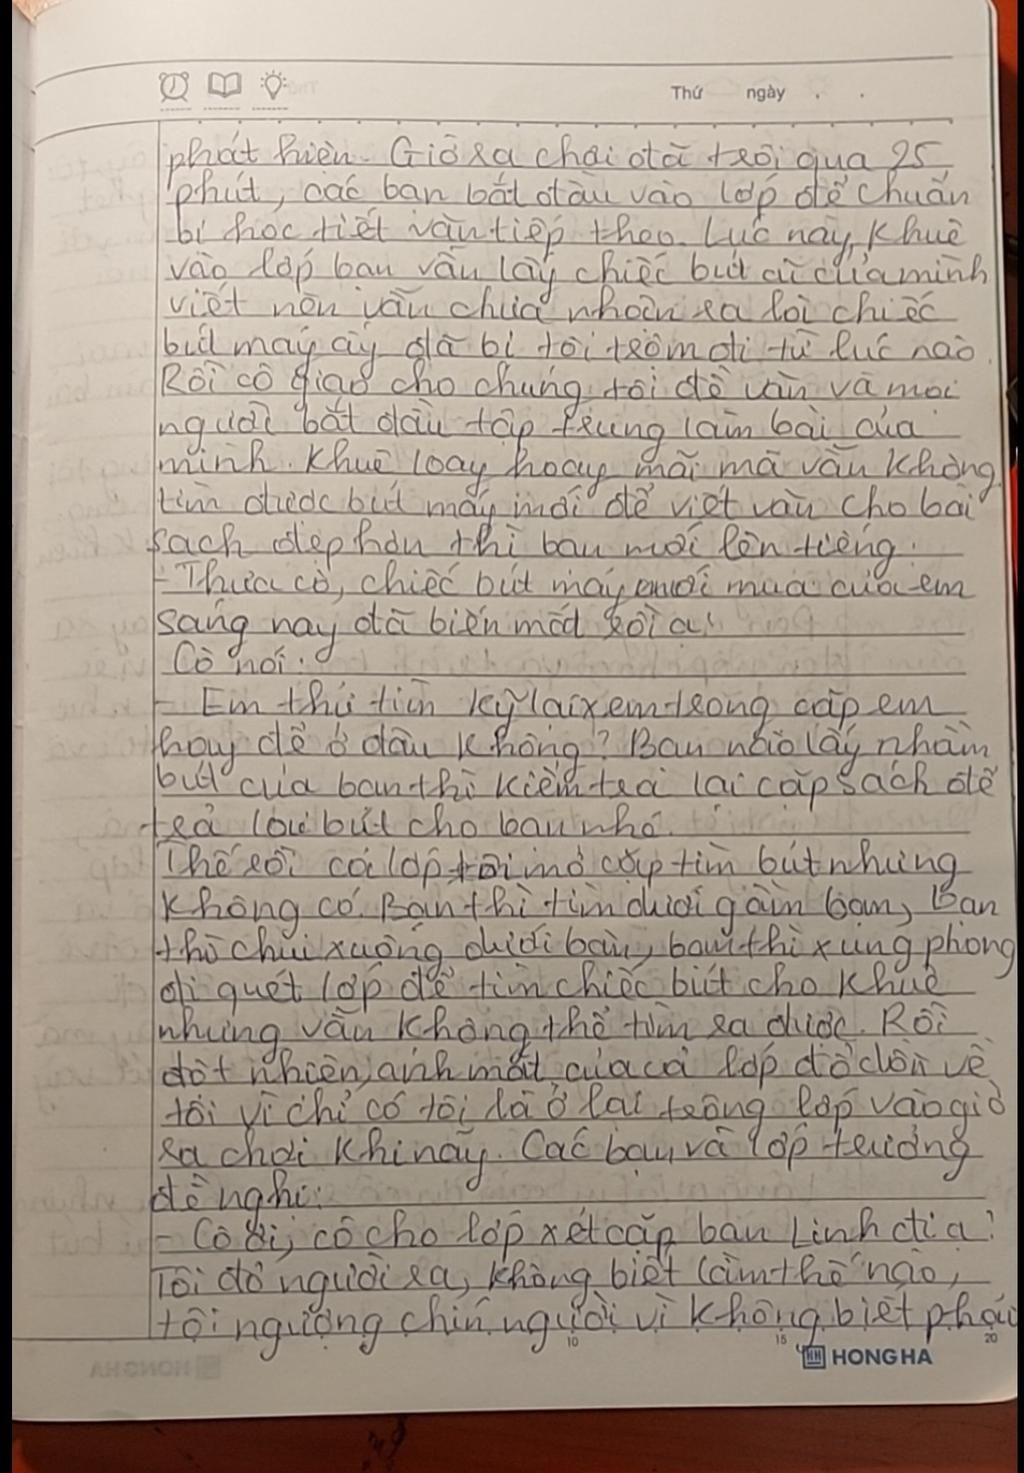 Thứ ngày . .
phát hiện. Giờ ra chơi đã trôi qua 25
phút, các bạn bắt đầu vào lớp để chuẩn
bị học tiết văn tiếp theo. Lúc này, Khuê
vào lớp bạn vẫn lấy chiếc bút cũ của mình
viết nên vẫn chưa nhận ra lời chiếc
bút máy ấy đã bị tôi trộm đi từ lúc nào.
Rồi cô giáo cho chúng tôi đề văn và mọi
người bắt đầu tập trung làm bài của
mình. Khuê loay hoay mãi mà vẫn không
tìm được bút máy mới để viết văn cho bài
sạch đẹp hơn thì bạn mới lên tiếng.
- Thưa cô, chiếc bút máy mới mua của em
sáng nay đã biến mất rồi ạ!
Cô nói:
- Em thử tìm kỹ lại xem trong cặp em
hay để ở đâu không? Bạn nào lấy nhầm
bút của bạn thì kiểm tra lại cặp sách để
trả lại bút cho bạn nhé.
Thế rồi cả lớp tôi mở cặp tìm bút nhưng
không có. Bạn thì tìm dưới gầm bàn, bạn
thì chui xuống dưới bàn, bạn thì xung phong
đi quét lớp để tìm chiếc bút cho Khuê
nhưng vẫn không thể tìm ra được. Rồi
đột nhiên, ánh mắt của cả lớp đổ dồn về
tôi vì chỉ có tôi là ở lại trong lớp vào giờ
ra chơi khi nãy. Các bạn và lớp trưởng
đề nghị:
- Cô ơi, cô cho lớp xét cặp bạn Linh đi ạ!
Tôi đơ người ra, không biết làm thế nào,
tôi ngượng chín người vì không biết phải
10 15 20
HONG HA